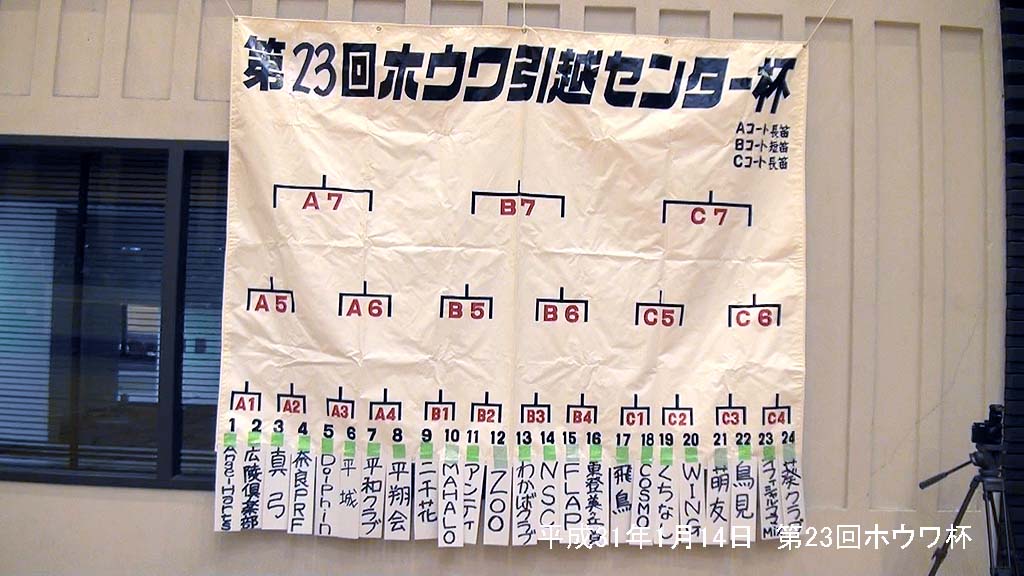 第23回ホウワ引越センター杯
Aコート長笛
Bコート短笛
Cコート長笛
A7 B7 C7
A5 A6 B5 B6 C5 C6
A1 A2 A3 A4 B1 B2 B3 B4 C1 C2 C3 C4
1 2 3 4 5 6 7 8 9 10 11 12 13 14 15 16 17 18 19 20 21 22 23 24
広陵倶楽部
真弓
奈良PRF
Dolphin
平城
平和クラブ
平翔会
二千花
MAHALO
アンティ
ZOO
わかばクラブ
NSC
FLAP
飛鳥
COSMO
くちなし
WING
萌友
鳥見
葵クラブ
平成31年1月14日 第23回ホウワ杯